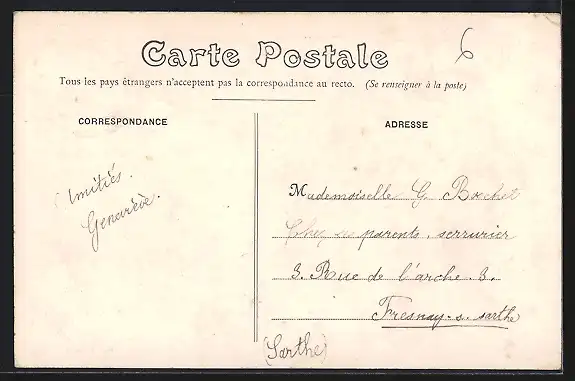 6
Carte Postale
Tous les pays étrangers n'acceptent pas la correspondance au recto. (Se renseigner à la poste)
CORRESPONDANCE
Amitiés.
Geneviève.
ADRESSE
Mademoiselle G. Bochet
Chez ses parents, serrurier
3. Rue de l'arche. 3.
Fresnay-s-sarthe
(Sarthe)